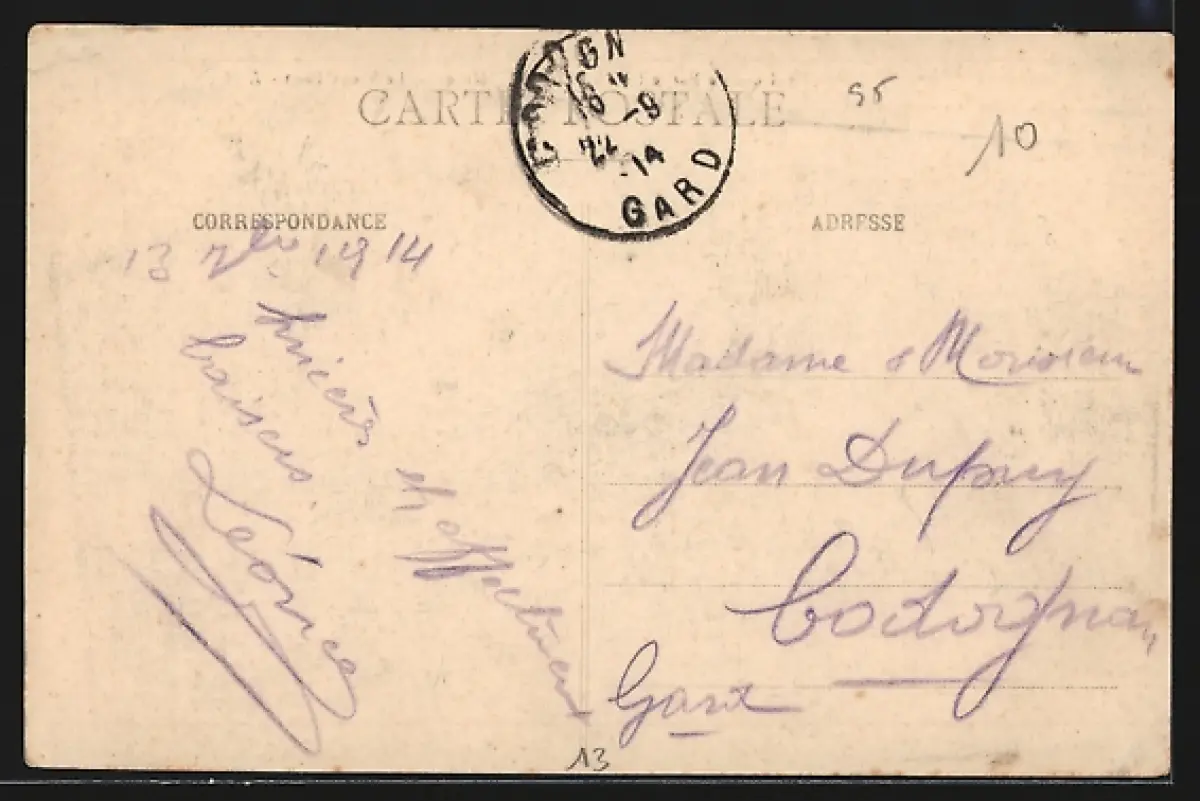 CARTE POSTALE
16 -9
14
GARD
95
10
CORRESPONDANCE
ADRESSE
13 7bre 1914
Sincères et affectueux
baisers.
Léonce
Madame & Monsieur
Jean Dupuy
Codognan
Gard
13